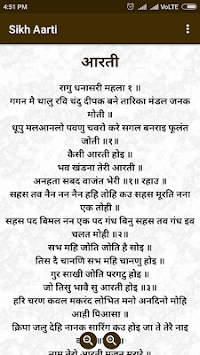 4:51 PM VoLTE
Sikh Aarti
आरती
रागु धनासरी महला १ ॥
गगन मै थालु रवि चंदु दीपक बने तारिका मंडल जनक
मोती ॥
धूपु मलआनलो पवणु चवरो करे सगल बनराइ फूलंत
जोती ॥१॥
कैसी आरती होइ ॥
भव खंडना तेरी आरती ॥
अनहता सबद वाजंत भेरी ॥१॥ रहाउ ॥
सहस तव नैन नन नैन हहि तोहि कउ सहस मूरति नना
एक तोही ॥
सहस पद बिमल नन एक पद गंध बिनु सहस तव गंध इव
चलत मोही ॥२॥
सभ महि जोति जोति है सोइ ॥
तिस दै चानणि सभ महि चानणु होइ ॥
गुर साखी जोति परगटु होइ ॥
जो तिसु भावै सु आरती होइ ॥३॥
हरि चरण कवल मकरंद लोभित मनो अनदिनो मोहि
आही पिआसा ॥
क्रिपा जलु देहि नानक सारिंग कउ होइ जा ते तेरै नाइ
नामु तेरो आरती मजनु मुरारे ॥